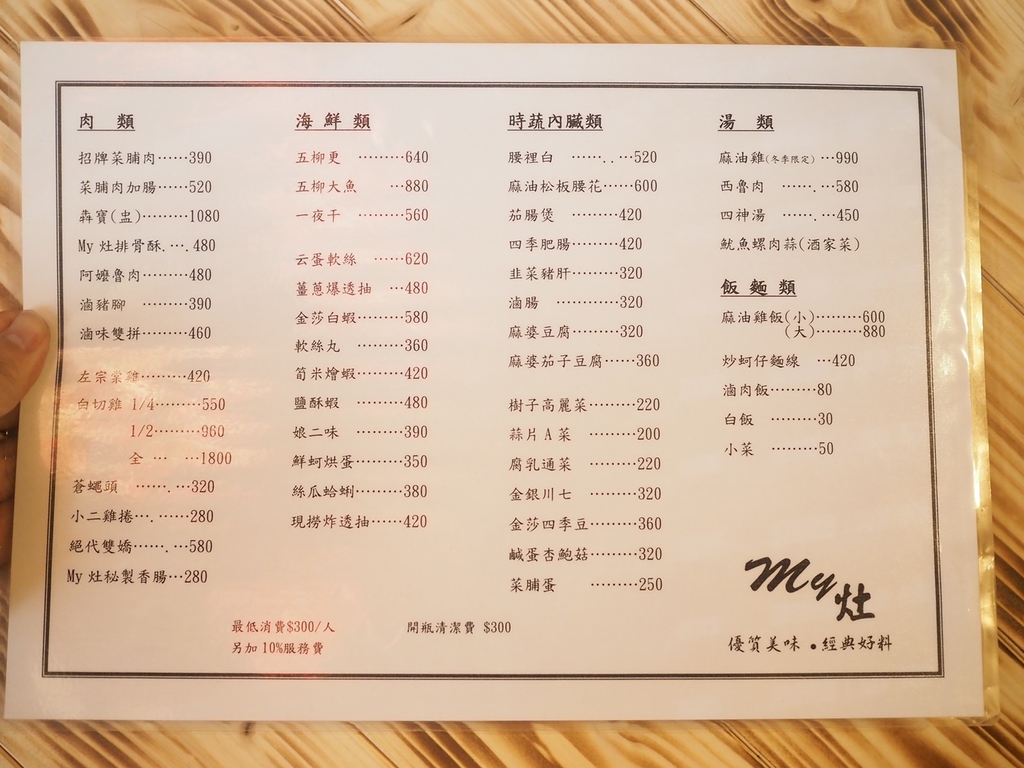 肉 類
招牌菜脯肉……390
菜脯肉加腸……520
犇寶(盅)………1080
My 灶排骨酥.….480
阿嬤魯肉………480
滷豬腳 ………390
滷味雙拼………460
左宗棠雞………420
白切雞 1/4………550
1/2………960
全 … …1800
蒼蠅頭 …….…320
小二雞捲….……280
絕代雙嬌…….…580
My 灶秘製香腸…280
海 鮮 類
五柳更 ………640
五柳大魚 …880
一夜干 ………560
云蛋軟絲 ……620
薑蔥爆透抽 …480
金莎白蝦………580
軟絲丸 ………360
筍米燴蝦………420
鹽酥蝦 ………480
娘二味 ………390
鮮蚵烘蛋………350
絲瓜蛤蜊………380
現撈炸透抽……420
時蔬內臟類
腰裡白 ……..…520
麻油松板腰花……600
茄腸煲 ………420
四季肥腸………420
韭菜豬肝………320
滷腸 …………320
麻婆豆腐………320
麻婆茄子豆腐……360
樹子高麗菜………220
蒜片A菜 ………200
腐乳通菜 ………220
金銀川七 ………320
金莎四季豆………360
鹹蛋杏鮑菇………320
菜脯蛋 ………250
湯 類
麻油雞(冬季限定)…990
西魯肉 …….…580
四神湯 …….…450
魷魚螺肉蒜(酒家菜)
飯 麵 類
麻油雞飯(小)………600
(大)………880
炒蚵仔麵線 …420
滷肉飯………80
白飯 ………30
小菜 ………50
My灶
優質美味．經典好料
最低消費$300/人 開瓶清潔費 $300
另加10%服務費